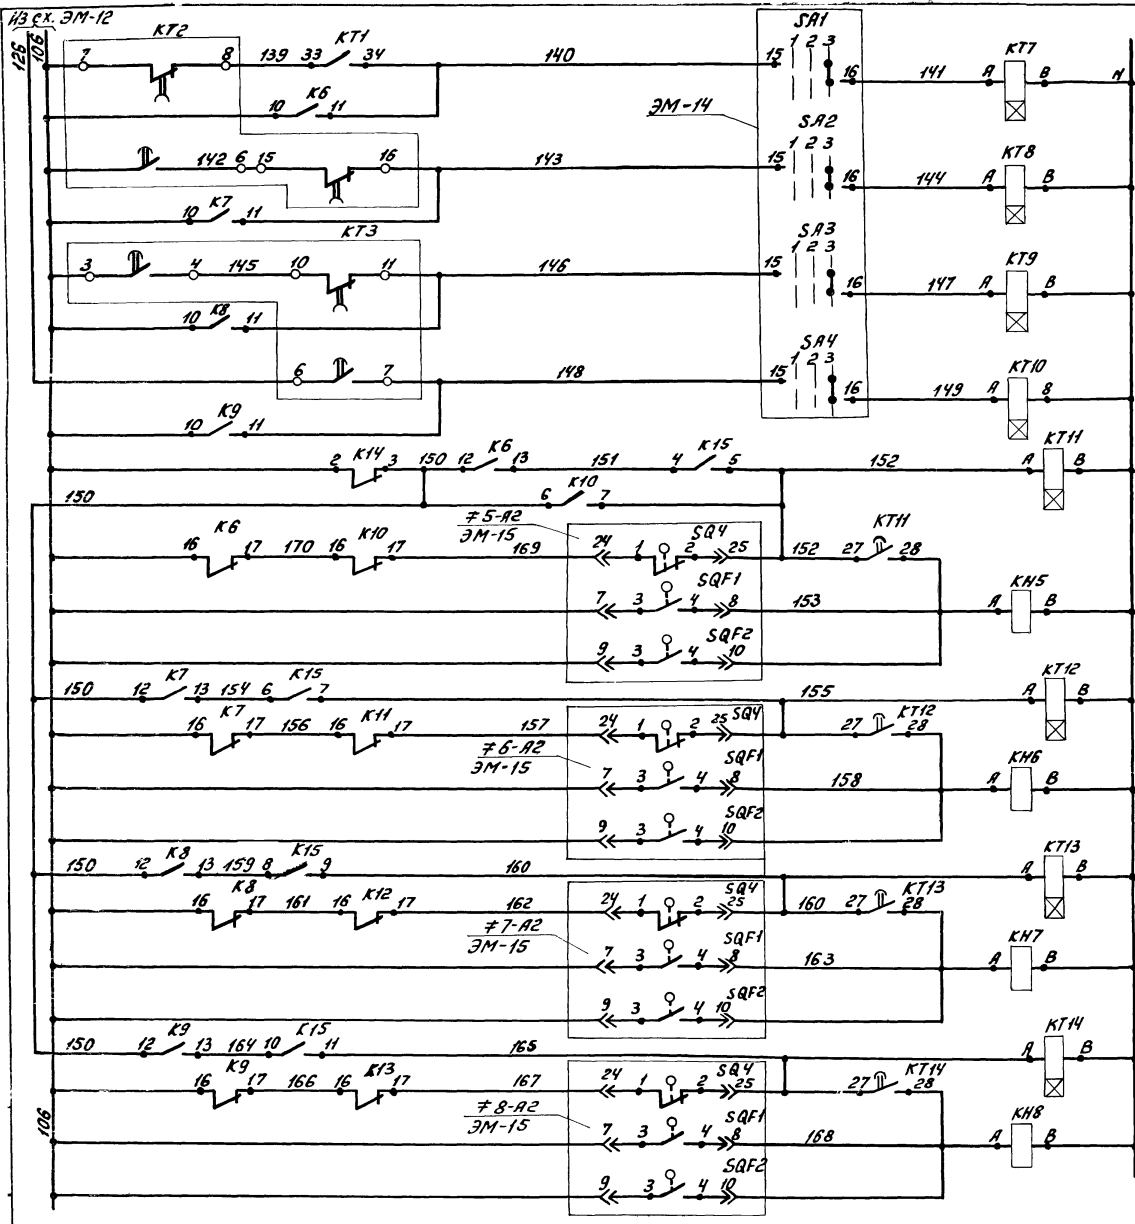 Из сх. ЭМ-12
126 106
КТ2 КТ1 SA1
7 8 139 33 34 140 15 1 2 3 16 141 A КТ7 B N
10 К6 11
ЭМ-14
SA2
142 6 15 16 143 15 1 2 3 16 144 A КТ8 B
10 К7 11
КТ3 SA3
3 4 145 10 11 146 15 1 2 3 16 147 A КТ9 B
10 К8 11
SA4
6 7 148 15 1 2 3 16 149 A КТ10 8
10 К9 11
2 К14 3 150 12 К6 13 151 4 К15 5 152 A КТ11 B
150 6 К10 7
≠5-А2
ЭМ-15
16 К6 17 170 16 К10 17 169 24 1 2 SQ4 25 152 27 КТ11 28
7 3 4 SQF1 8 153 A КН5 B
9 3 4 SQF2 10
150 12 К7 13 154 6 К15 7 155 A КТ12 B
16 К7 17 156 16 К11 17 157 24 1 2 25 SQ4 27 КТ12 28
≠6-А2
ЭМ-15
7 3 4 SQF1 8 158 A КН6 B
9 3 4 SQF2 10
150 12 К8 13 159 8 К15 9 160 A КТ13 B
16 К8 17 161 16 К12 17 162 24 1 2 SQ4 25 160 27 КТ13 28
≠7-А2
ЭМ-15
7 3 4 SQF1 8 163 A КН7 B
9 3 4 SQF2 10
150 12 К9 13 164 10 К15 11 165 A КТ14 B
16 К9 17 166 16 К13 17 167 24 1 2 SQ4 25 27 КТ14 28
≠8-А2
ЭМ-15
106
7 3 4 SQF1 8 168 A КН8 B
9 3 4 SQF2 10